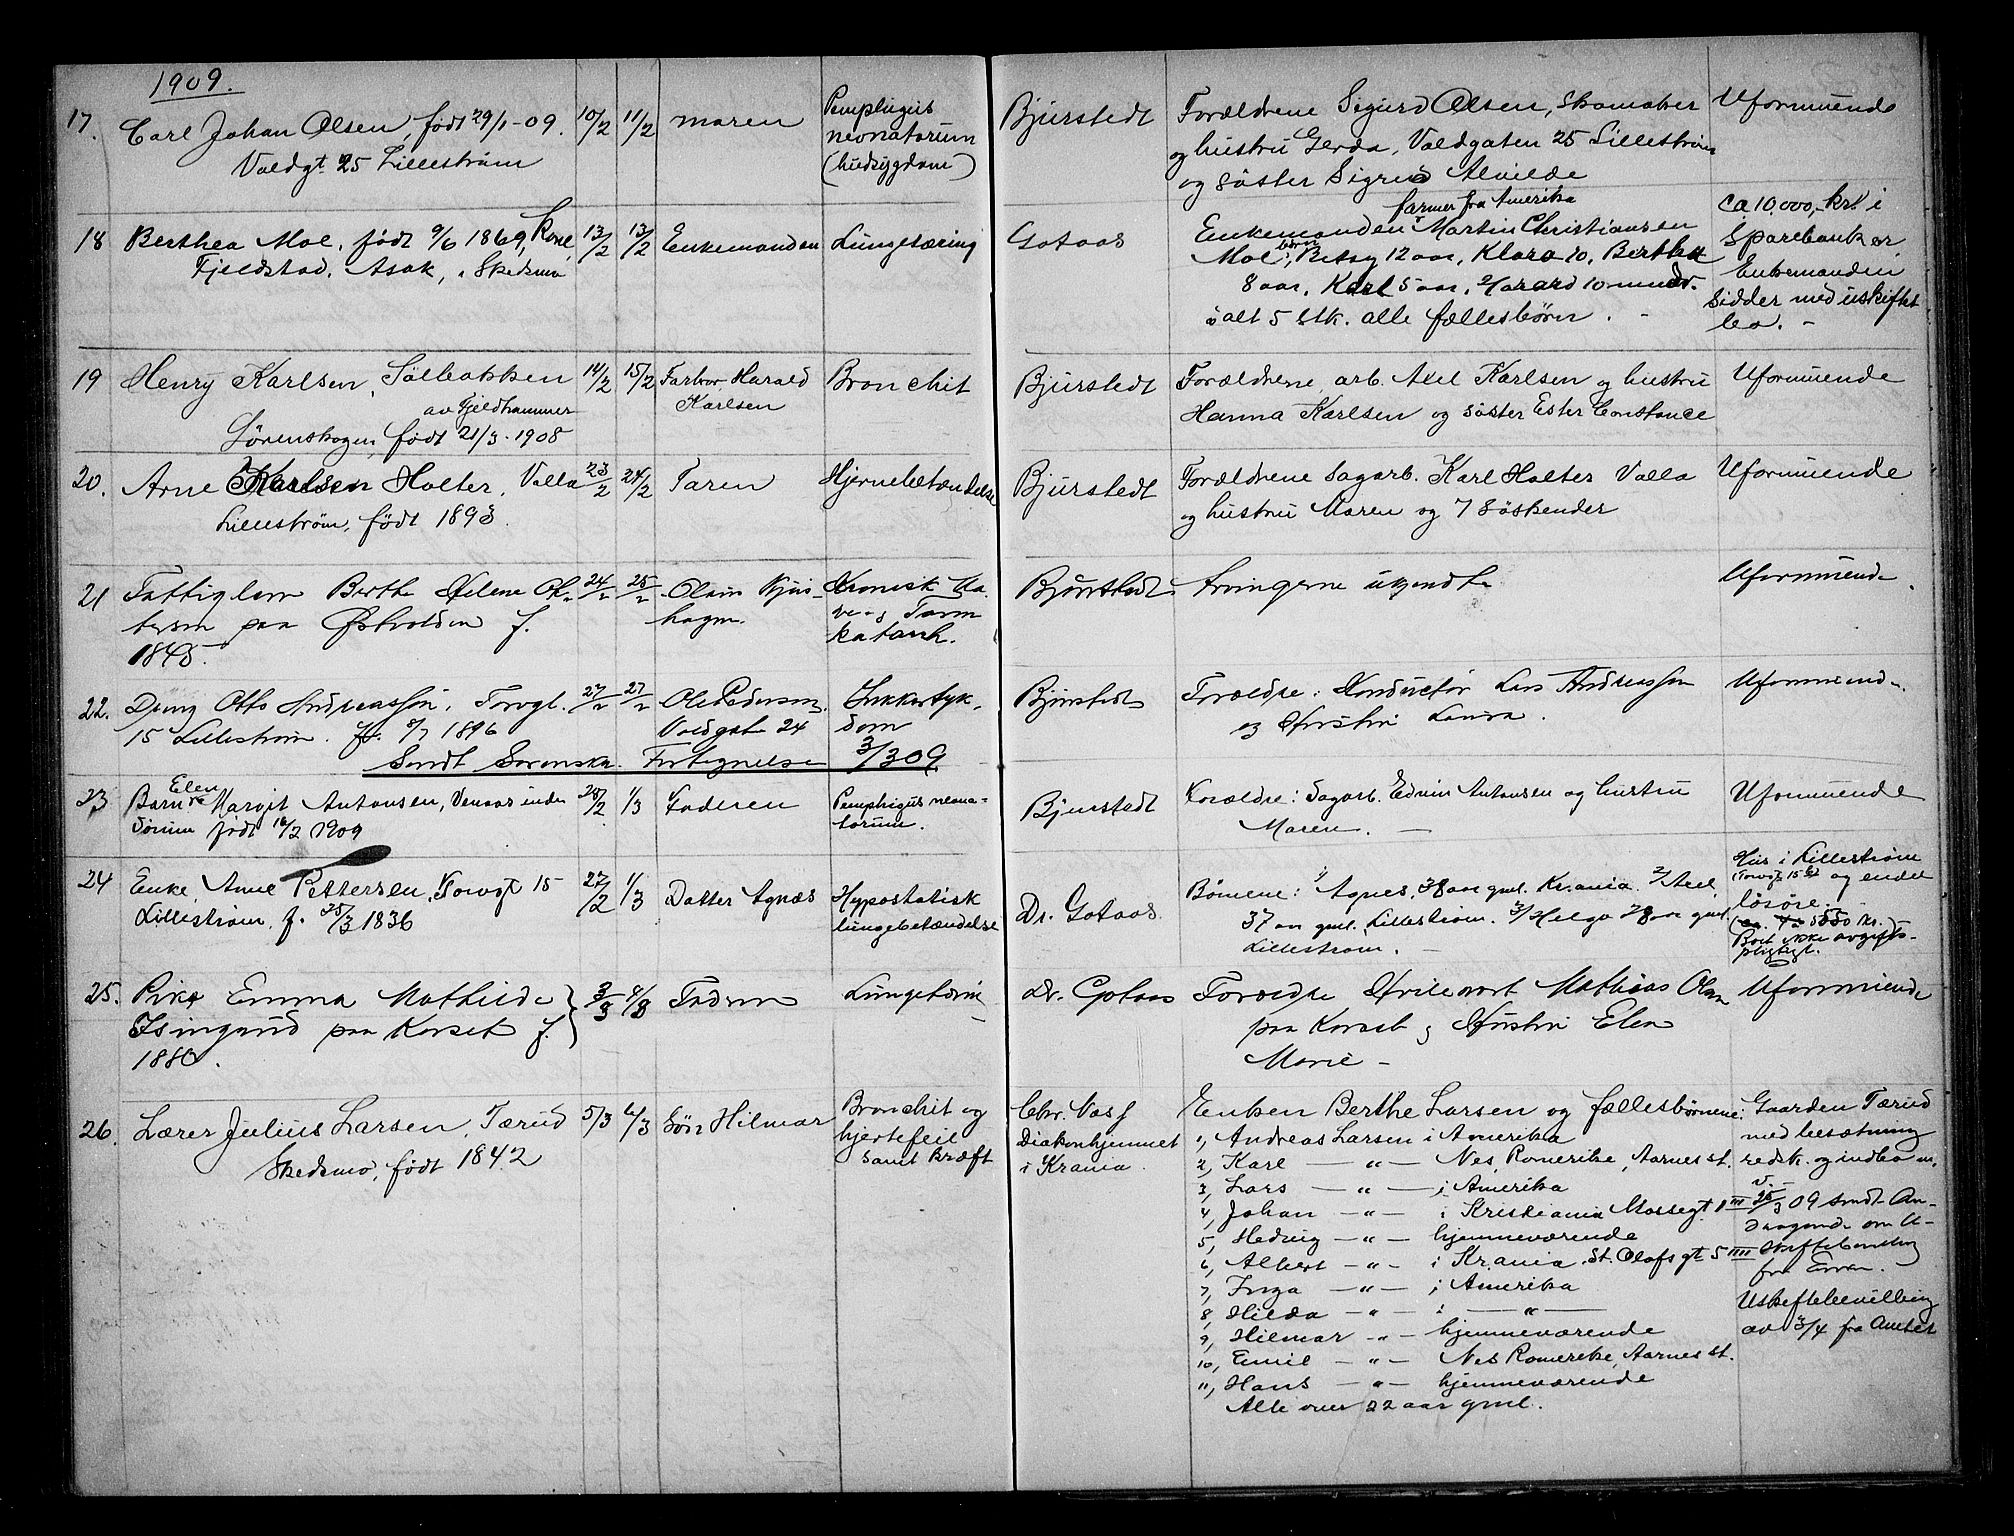 1909.
17. Carl Johan Olsen, født 29/1-09. 10/2 11/2 moren Pemphigus Bjurstedt Forældrene Sigurd Olsen, Skomaker Uformuende
Voldgt. 25 Lillestrøm neonatorum og hustru Gerda, Voldgaten 25 Lillestrøm
(hudsygdom) og søster Sigrid Alvilde
18 Berthea Moe, født 9/6 1869, Kone 13/2 13/2 Enkemanden Lungetæring Gotaas Enkemanden farmer fra Amerika Martin Christiansen ca 10,000,- kr. i
Fjeldstad, Asak, i Skedsmo Moe, børn: Betsy 12 aar, Klara 10, Berthea Sparebank or
8 aar, Karl 5 aar, Harard 10 mndr. Enkemanden
i alt 5 stk. alle fællesbørn. - sidder med uskiftet
bo. -
19 Henry Karlsen, Sølbakken 14/2 15/2 Farbror Harald Bronchit Bjurstedt Forældrene arb. Axel Karlsen og hustru Uformuende
av Fjeldhammer Karlsen Hanna Karlsen og søster Ester Constance
Lørenskogen, født 21/3-1908
20. Arne Karlsen Holter, Volla 23/2 24/2 Faren Hjernebetændelse Bjurstedt Forældrene Sagarb. Karl Holter Volla Uformuende
Lillestrøm, født 1893. og hustru Maren og 7 søskender
21 Fattiglem Berthe Helene 24/2 25/2 Kronisk Ma- Bjurstedt Arvingerne ukjendt Uformuende
paa f. hagen. ve og Tarm
1845. katarrh.
22. Otto Andreassen, Torvgt. 27/2 27/2 Ole Pedersen Sukkersyk- Bjurstedt Forældre: Konductør Lars Andreassen Uformuende
15 Lillestrøm. f. 1896 Voldgate 24 dom og Hustru Laura.
Sendt Sorenskr. Fortegnelse 3/3 09
23 Barn Elen Margit Antonsen, 28/2 1/3 Faderen Pemphigus neona- Bjurstedt Forældre: Sagarb. Edvin Antonsen og hustru Uformuende
Sørum født 16/2 1909 torum. Maren. -
24 Enke Anne Pettersen, Torvgt 15 27/2 1/3 Datter Agnæs Hypostatisk Dr. Gotaas Børnene: 1/ Agnes, 38 aar gml. Kr.ania. 2/ Axel Hus i Lillestrøm
Lillestrøm, f. 25/3 1836 lungebetændelse 37 aar gml. Lillestrøm. 3/ Helga 28 aar gml. (Torvgt 15) og endel
Lillestrøm. - løsøre.
5550 kr.)
Boet ikke avgifts-
pligtigt.
25. Pike Emma Mathilde 3/3 4/3 Faderen Lungetæring Dr. Gotaas Forældre Mathias Olsen Uformuende
Isingrud paa Korset f. paa Korset og Hustru Elen
1880. Marie -
26. Lærer Julius Larsen, Tærud 5/3 6/3 Søn Hilmar Bronchit og Chr. Næss Enken Berthe Larsen og fællesbørnene: Gaarden Tærud
Skedsmo, født 1842 hjertefeil Diakonhjemmet 1, Andreas Larsen i Amerika med besætning
samt kræft i Krania. 2, Karl — " — Nes, Romerike, Aarnes st. redsk. og indbo m.
3, Lars — " — i Amerika v. -
4, Johan — " — i Kristiania Mossegt. 1 III 25/3 09 sendt An-
5, Hedvig — " — hjemmeværende dragende om U-
6, Albert — " — i Kr.ania. St. Olafs gt 5 IIII skiftebevilling
7, Inga — " — i Amerika fra Enken.
8, Hilda — " — i — " — Uskiftebevilling
9, Hilmar — " — hjemmeværende av 3/4 fra Amtet
10, Emil — " — Nes Romerike, Aarnes st.
11, Hans — " — hjemmeværende
Alle over 22 aar gml.